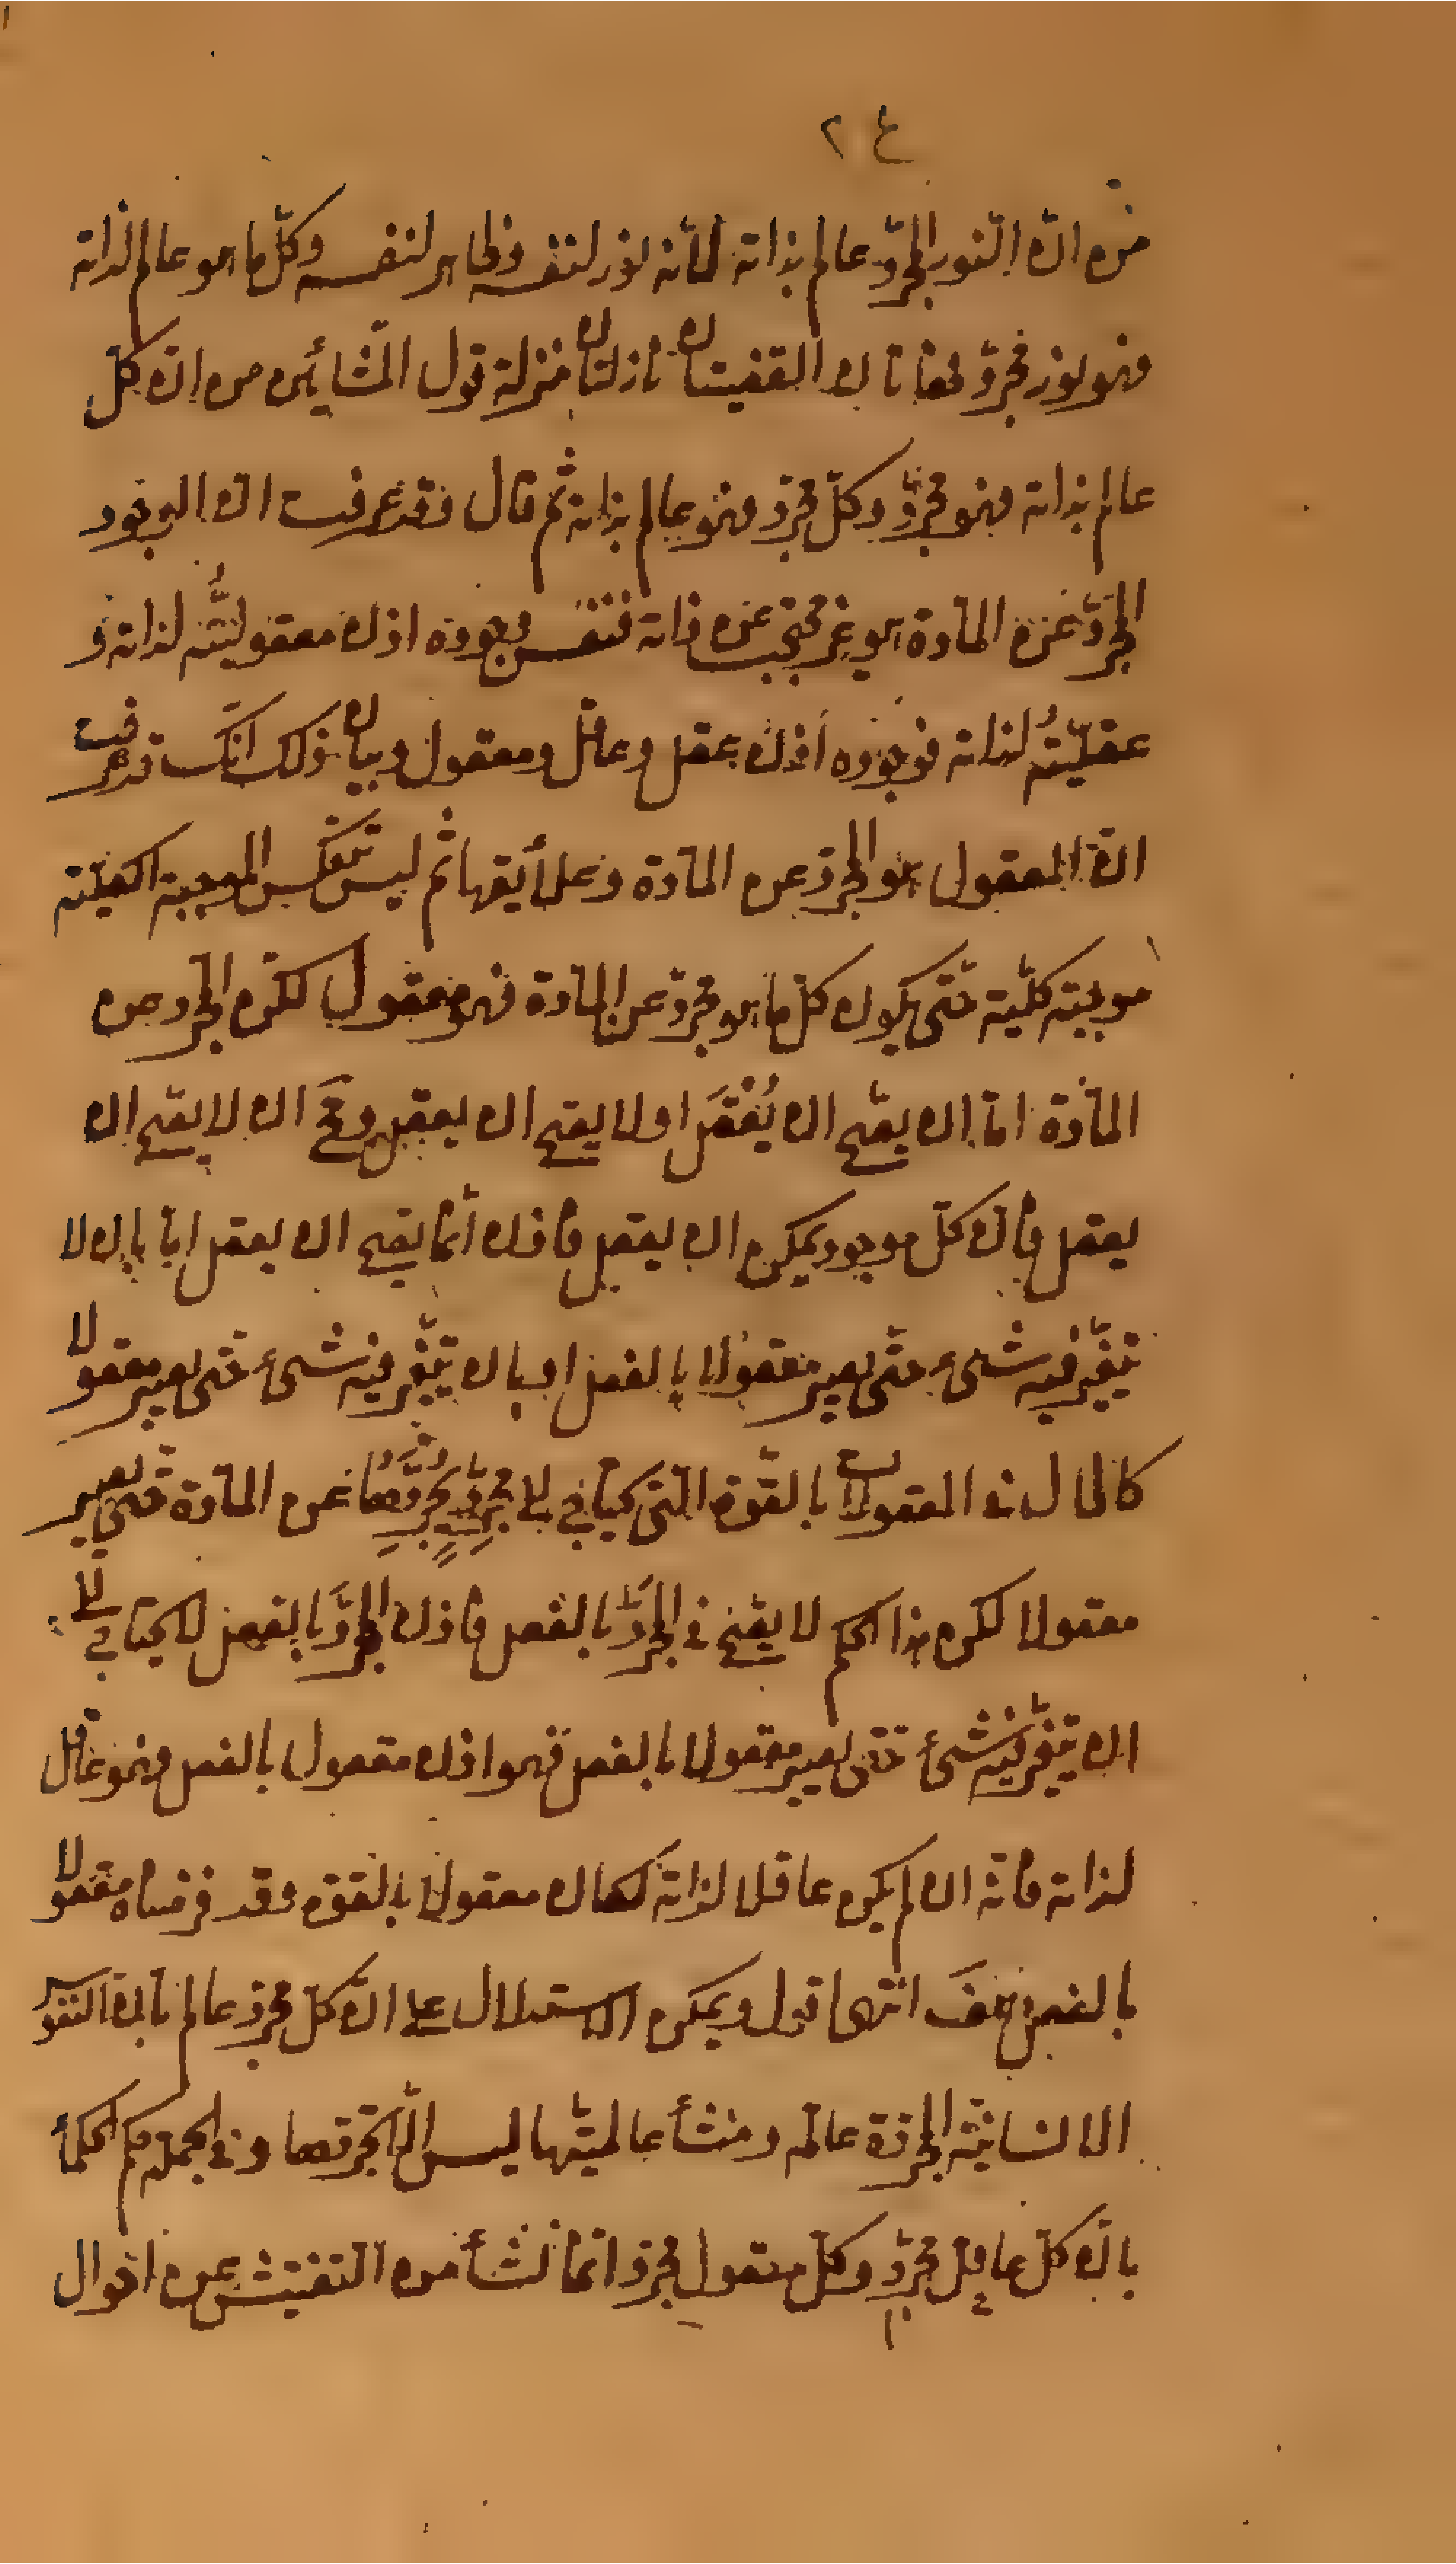 ٢٤
من ان النور المجرّد عالم بذاته لأنه نور لنفسه وظاهر لنفسه وكلّ ما هو عالم لذاته
فهو نور مجرّد فهاتان القضيتان نازلتان منزلة قول المشائين من انّ كلّ
عالم بذاته فهو مجرّد وكلّ مجرّد فهو عالم بذاته ثم قال فقد عرفت ان الوجود
المجرّد عن المادة هو غير محتجب عن ذاته فنفس وجوده اذن معقوليّته لذاته و
عقليّتُه لذاته فوجوده اذن عقل وعاقل ومعقول وبيان ذلك انّك قد عرفت
انّ المعقول هو المجرّد عن المادة وعلائقها ثم ليس تنعكس الموجبة الكلية
موجبة كليّة حتى يكون كلّ ما هو مجرّد عن المادة فهو معقول لكن المجرد عن
المادة امّا ان يصحّ ان يُعقَل اولا يصح ان يعقل ومح ان لا يصح ان
يعقل فان كلّ موجود يمكن ان يعقل فاذن انما يصح ان يعقل اما بان لا
يتغيّر فيه شىء حتّى يصير معقولا بالفعل او بان يتغيّر فيه شىء حتى يصير معقولا
كالحال فى المعقولات بالقوة التى تحتاج الى مجرّد يجرّدها عن المادة حتى يصير
معقولا لكن هذا الحكم لا يصح فى المجرّد بالفعل فاذن المجرّد بالفعل لا يحتاج الى
ان يتغيّر فيه شىء حتى يصير معقولا بالفعل فهو اذن معقول بالفعل فهو عاقل
لذاته فانه ان لم يكن عاقلا لذاته لكان معقولا بالقوه وقد فرضناه معقولا
بالفعل هف انتهى اقول ويمكن الاستدلال على انّ كلّ مجرّد عالم بان النفوس
الانسانيّة المجرّدة عالمة ومنشأ عالميّتها ليس الّا تجرّدها وفى الجملة حكم الحكماء
بانّ كلّ عاقل مجرّد وكلّ معقول مجرد انما نشأ من التفتيش عن احوال